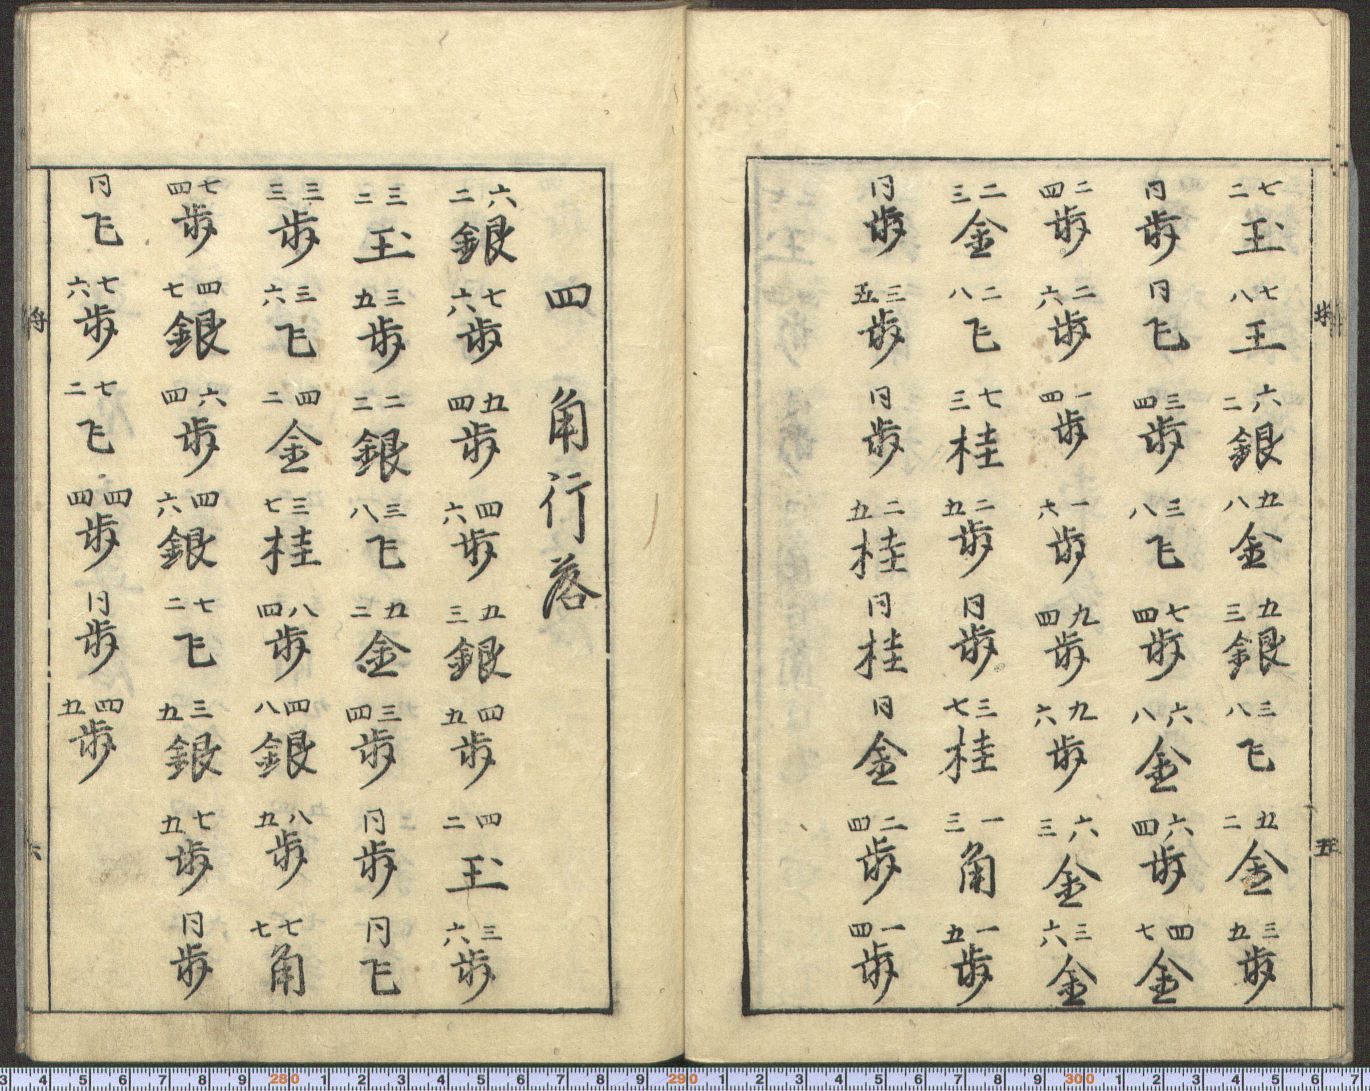 将 五
七二玉 七八王 六二銀 五八金 五三銀 三八飞 五二金 三五歩
同歩 同飞 三四歩 三八飞 七四歩 六八金 六四歩 四七金
二四歩 二六歩 一四歩 一六歩 九四歩 九六歩 六三金 三六金
二三金 二八飞 七三桂 二五歩 同歩 三七桂 一三角 一五歩
同歩 三五歩 同歩 二五桂 同桂 同金 二四歩 一四歩
四 角行落
六二銀 七六歩 五四歩 四六歩 五三銀 四五歩 四二玉 三六歩
三二玉 三五歩 二二銀 三八飞 五二金 三四歩 同歩 同飞
三三歩 三六飞 四二金 三七桂 八四歩 四八銀 八五歩 七七角
七四歩 四七銀 六四歩 四六銀 七二飞 三五銀 七五歩 同歩
同飞 七六歩 七二飞 四四歩 同歩 四五歩
将 六